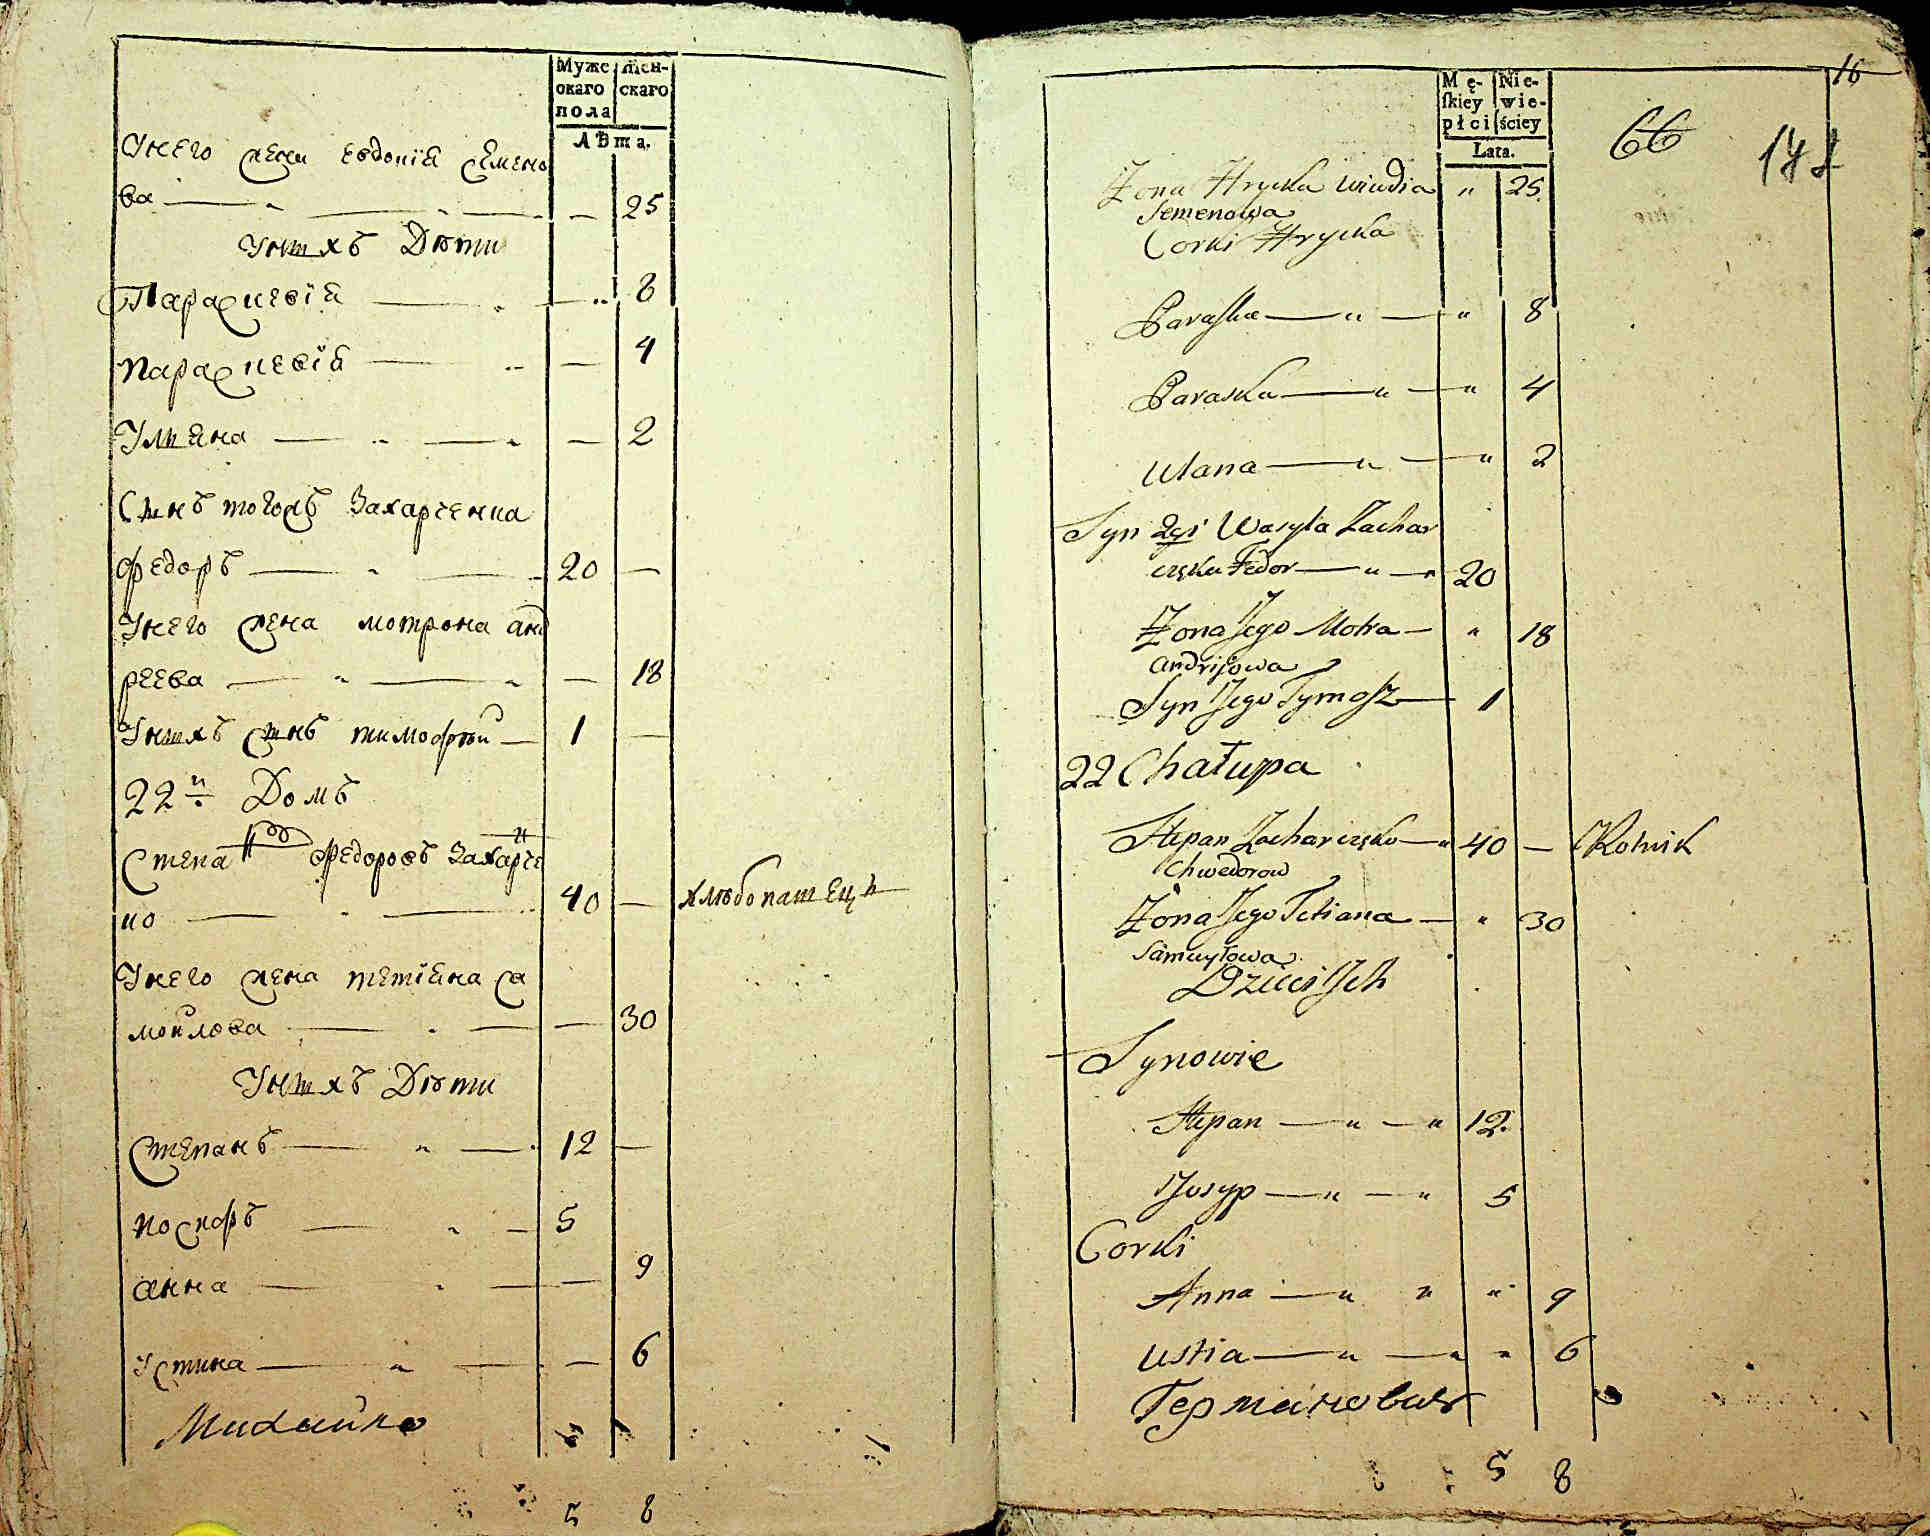 Муже
скаго
пола
Жен-
скаго
Лѣта.
У него жена Евдокія Семено
ва — „ — „ — — 25
У них Дѣти
Параскевія — „ — „ 8
Параскевія — „ — 4
Улияна — „ — „ — 2
Сынъ тогожъ Захарченка
Федоръ — „ — 20 —
У него жена Мотрона Анд
реева — „ — „ — 18
У них сынъ Тимофѣй — 1 —
22й Домъ
Степан Федоровъ Захарче
нко — „ — 40 — хлѣбопашецъ
У него жена Тетіяна Са
мойлова — „ — — 30
У них Дѣти
Степанъ — „ — 12 —
Иосифъ — „ — 5
Анна — „ — — 9
Устина — „ — — 6
Михайло
5 8
16
Mę-
skiey
płci
Nie-
wie-
ściey
Lata.
66
Żona Hrycka Wiudia „ 25.
Semenowa
Corki Hrycka
Paraska — „ — „ 8
Paraska — „ — „ 4
Ulana — „ — „ 2
Syn 2gi Wasyla Zachar
częka Fedor — „ — „ 20
Żona Jego Motra — „ 18
Andrijowa
Syn Jego Tymosz — 1
22 Chałupa
Stepan Zacharczęko — „ 40 — Rolnik
Chwedorow
Żona Jego Tetiana — „ 30
Samuyłowa
Dzieci Jch
Synowie
Stepan — „ — „ 12.
Josyp — „ — „ 5
Corki
Anna — „ „ „ 9
Ustia — „ — „ „ 6
Германович
5 8